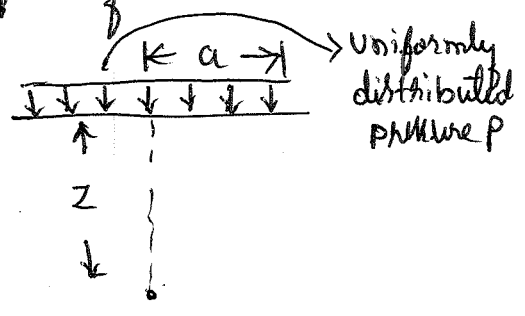 q
a
Uniformly
distributed
pressure P
Z